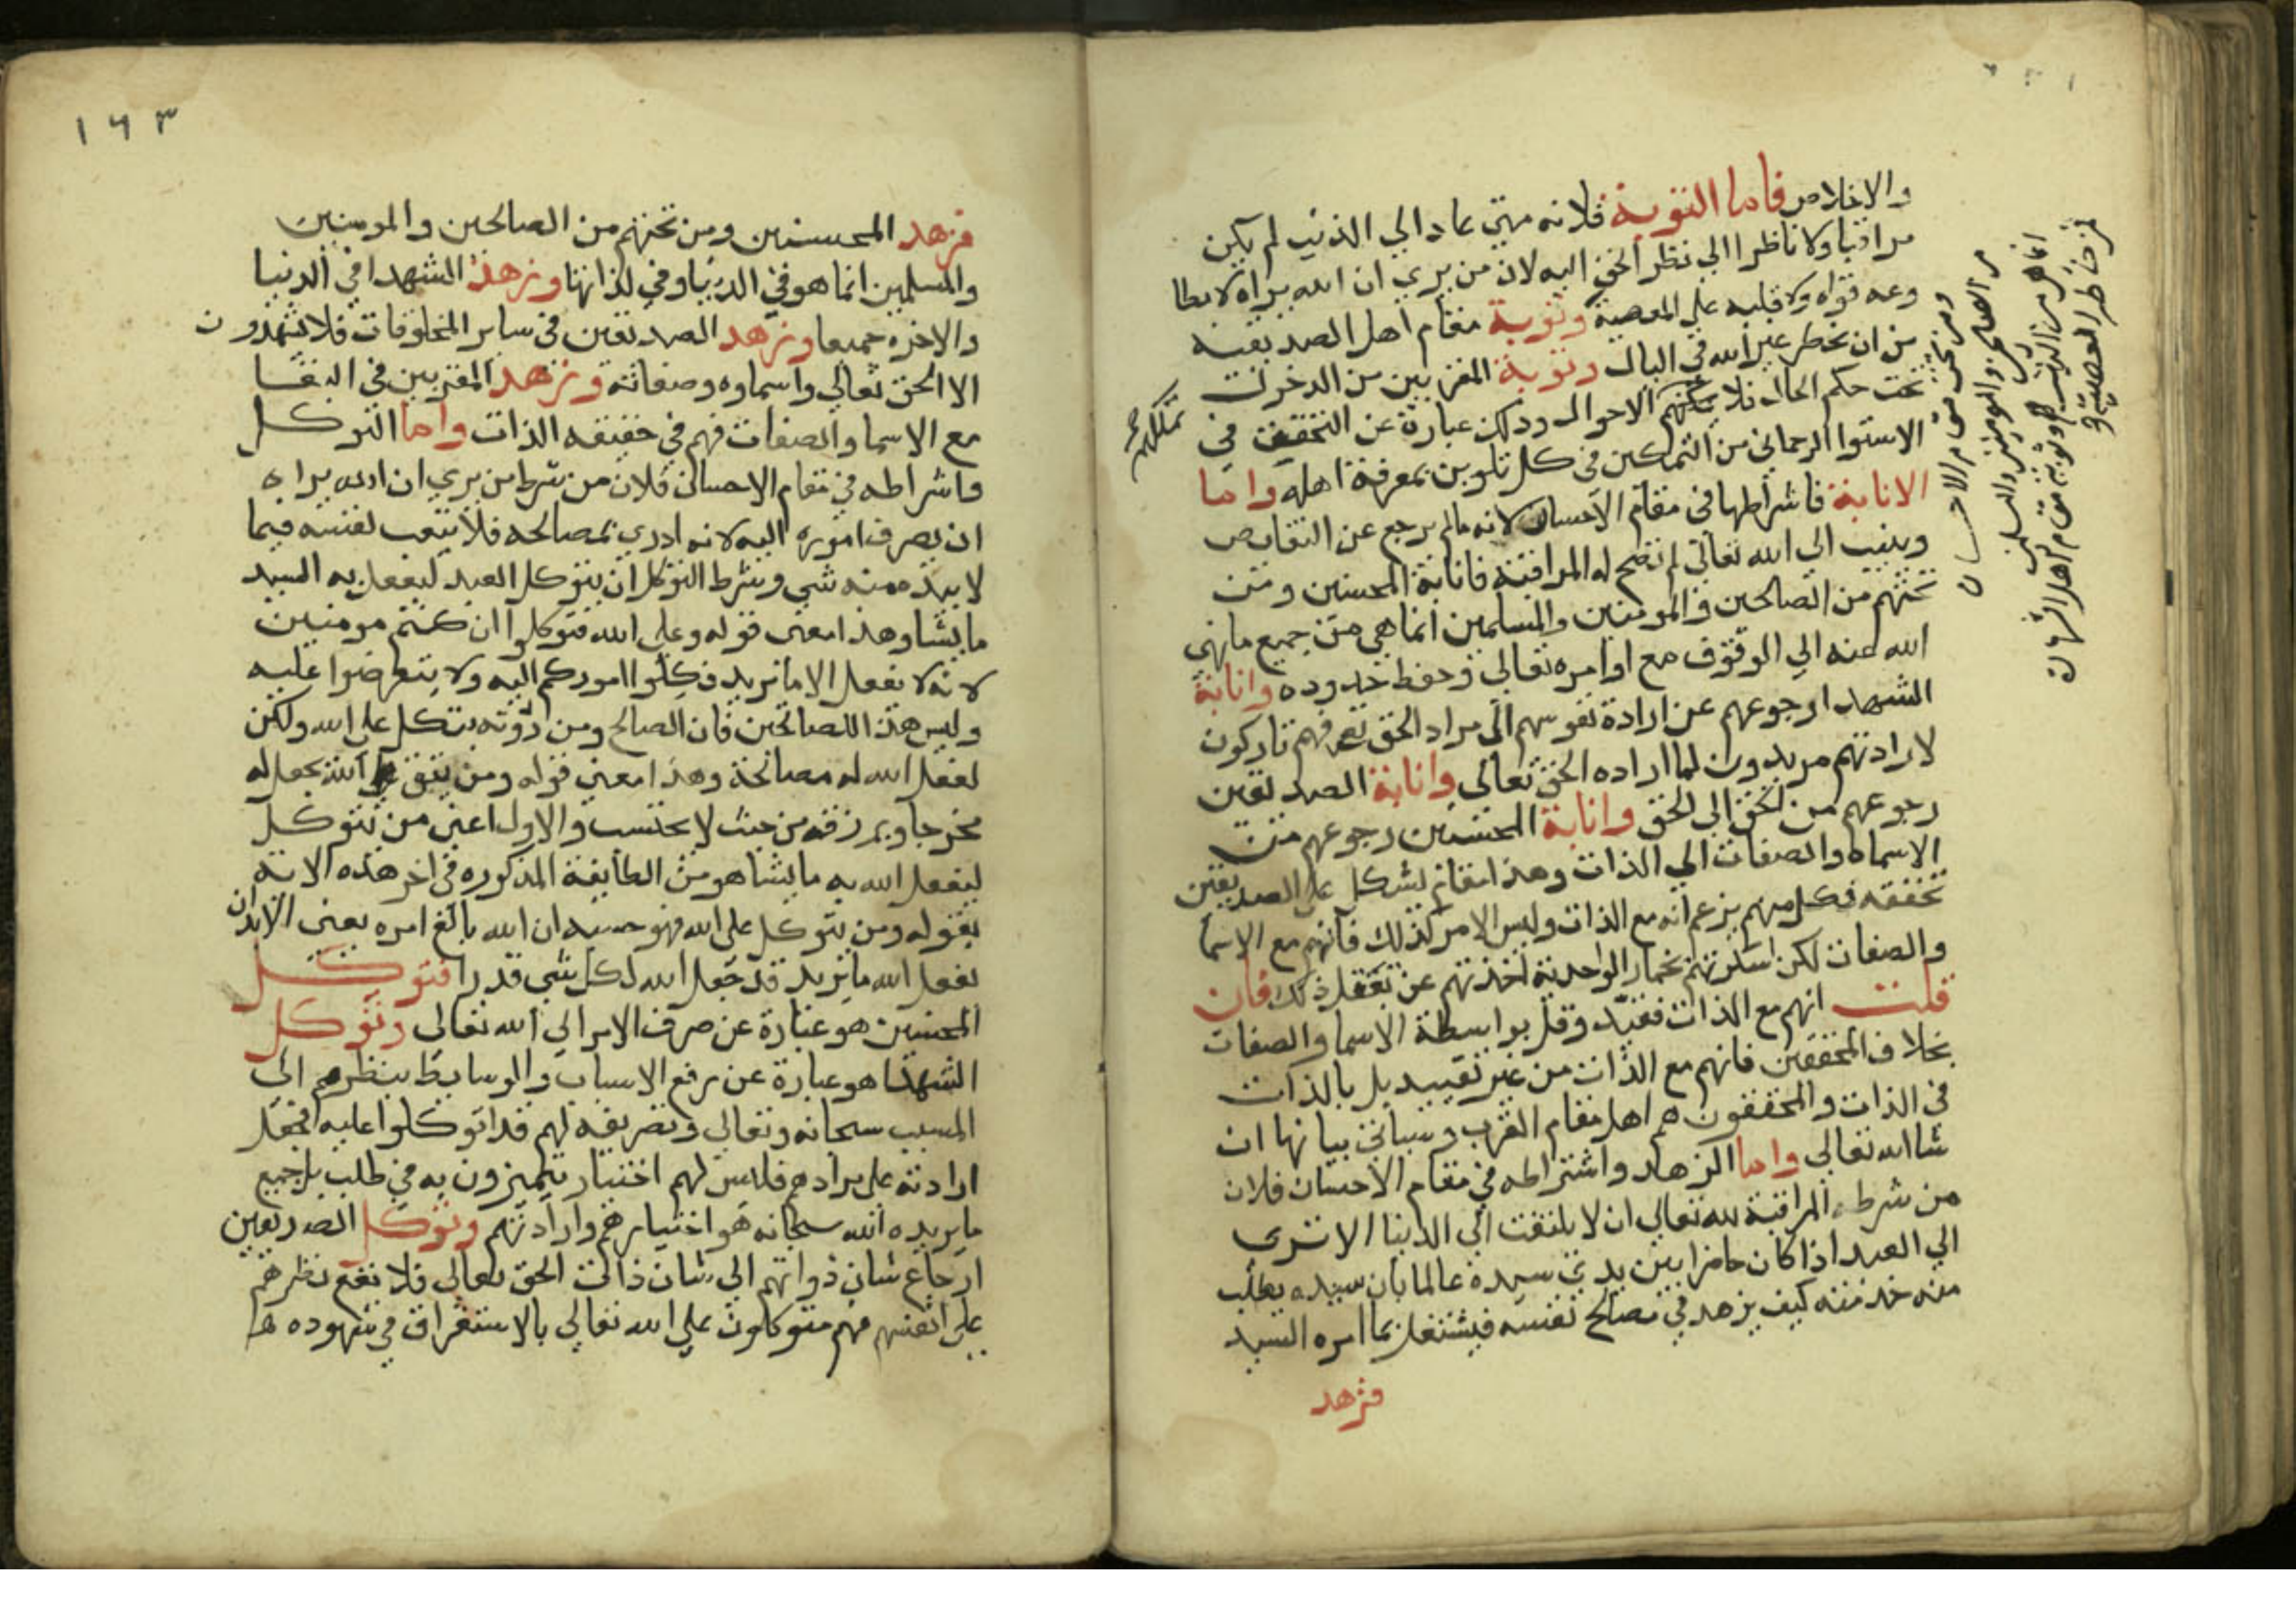 والاخلاص فاما التوبة فلانه متي عاد الي الذنب لم يكن
مراقبا ولا ناظرا الي نظر الحق اليه لان من يري ان الله يراه لا يطا
وعه قواه ولا قلبه علي المعصية وتوبة مقام اهل الصديقيه
من ان يخطر غير الله في البال وتوبة المقربين من الدخول
تحت حكم الحال فلا الاحوال وذلك عبارة عن التحقيق في
تملكهم
الاستوا الرحماني من التمكين في كل تلوين بمعرفة اهله واما
الانابة فاشراطها في مقام الاحسان لانه مالم يرجع عن النقايص
وينيب الي الله تعالي لم تصح له المراقبة فانابة المحسنين ومن
تحتهم من الصالحين والمومنين والمسلمين انما هي من جميع ما نهي
الله عنه الي الوقوف مع اوامره تعالي وحفظ حدوده وانابة
الشهدا رجوعهم عن ارادة نفوسهم الي مراد الحق تع فهم تاركون
لارادتهم مريدون لما اراده الحق تعالي وانابة الصديقين
رجوعهم من الحق الي الحق وانابة المحسنين رجوعهم من
الاسماء والصفات الي الذات وهذا مقام يشكل علي الصديقين
تحققه فكل منهم يزعم انه مع الذات وليس الامر كذلك فانهم مع الاسما
والصفات لكن اسكرتهم بخمار الواحدية اخذتهم عن تعقل ذلك فان
قلت انهم مع الذات فقيد وقل بواسطة الاسما والصفات
بخلاف المحققين فانهم مع الذات من غير تقييد بل بالذات
في الذات والمحققون هم اهل مقام القرب وسياتي بيانها ان
شا الله تعالي واما الزهد واشتراطه في مقام الاحسان فلان
من شرطه المراقبة لله تعالي ان لا يلتفت الي الدنيا الا تري
الي العبد اذا كان حاضرا بين يدي سيده عالما بان سيده يطلب
منه خدمته كيف يزهد في مصالح نفسه فيشتغل بما امره السيد
فزهد
ومن تحتهم من الاحسان
من الصالحين والمومنين والمسلمين
انما هي من الذنب وتوبة مقام اهل الشهادة
من خاطر المعصية
١٦٣
فزهد المحسنين ومن تحتهم من الصالحين والمومنين
والمسلمين انما هو في الدنيا وفي لذاتها وزهد الشهدا في الدنيا
والاخره جميعا وزهد الصديقين في ساير المخلوقات فلا يشهدون
الا الحق تعالي واسماوه وصفاته وزهد المقربين في البقا
مع الاسما والصفات فهم في حقيقه الذات واما التوكل
فاشراطه في مقام الاحسان فلان من شرط من يري ان الله يراه
ان يصرف اموره اليه لانه ادري بمصالحه فلا يتعب لنفسه فيما
لا بيده منه شي وشرط التوكل ان يتوكل العبد ليفعل به السيد
ما يشا وهذا معني قوله وعلي الله فتوكلوا ان كنتم مومنين
لانه لا يفعل الا ما يريد فكلوا اموركم اليه ولا يتعرضوا عليه
وليس هذا للصالحين فان الصالح ومن دونه يتكل علي الله ولكن
لفعل الله له مصالحة وهذا معني قوله ومن يتق الله يجعل له
مخرجا ويرزقه من حيث لا يحتسب والاول اعني من يتوكل
ليفعل الله به ما يشا هو من الطايفة المذكوره في اخر هذه الايه
بقوله ومن يتوكل علي الله فهو حسبه ان الله بالغ امره يعني
يفعل الله ما يريد قد جعل الله لكل شي قدرا فتوكل
المحسنين هو عبارة عن صرف الامر الي الله تعالي وتوكل
الشهدا هو عبارة عن رفع الاسباب والوسايط بنظرهم الي
المسبب سبحانه وتعالي وتصريفه لهم قد اتوكلوا عليه فجعل
ارادته علي مرادهم فليس لهم اختيار يتميزون به في طلب بل جميع
ما يريده الله سبحانه هو اختيارهم وارادتهم وتوكل الصديقين
ارجاع شان ذواتهم الي شان ذات الحق تعالي فلا يقع نظرهم
علي انفسهم فهم متوكلون علي الله تعالي بالاستغراق في شهوده ها